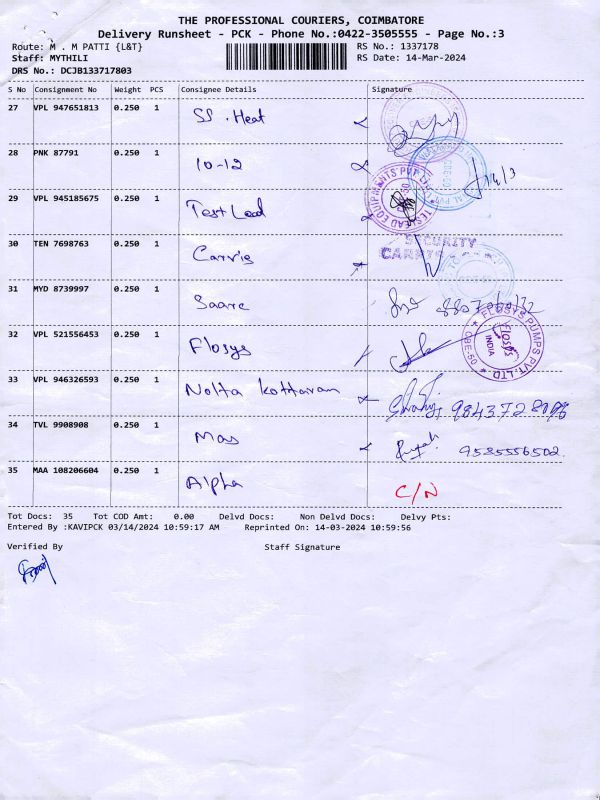 THE PROFESSIONAL COURIERS, COIMBATORE
Delivery Runsheet - PCK - Phone No.:0422-3505555 - Page No.:3
Route: M . M PATTI {L&T}
RS No.: 1337178
Staff: MYTHILI
RS Date: 14-Mar-2024
DRS No.: DCJB133717803
S No Consignment No Weight PCS Consignee Details Signature
27 VPL 947651813 0.250 1 SS .Heat
28 PNK 87791 0.250 1 10-12 14/3
29 VPL 945185675 0.250 1 Test Lead
TESTLEAD EQUIPMENTS PVT. LTD.
30 TEN 7698763 0.250 1 Carris
SECURITY
31 MYD 8739997 0.250 1 Saare
32 VPL 521556453 0.250 1 Flosys
FLOSYS PUMPS PVT. LTD. CBE-09
Flosys
INDIA
33 VPL 946326593 0.250 1 Nalta kottaran
34 TVL 9908908 0.250 1 Mas 9585556502
35 MAA 108206604 0.250 1 Alpha C/N
Tot Docs: 35 Tot COD Amt: 0.00 Delvd Docs: Non Delvd Docs: Delvy Pts:
Entered By :KAVIPCK 03/14/2024 10:59:17 AM Reprinted On: 14-03-2024 10:59:56
Verified By Staff Signature